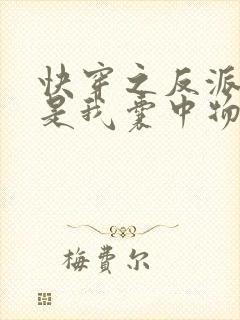 快穿之反派
是我囊中物
梅費尔